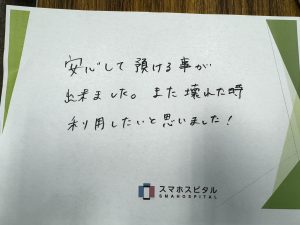 安心して預ける事が
出来ました。また壊れた時
利用したいと思いました！
スマホスピタル
SMAHOSPITAL